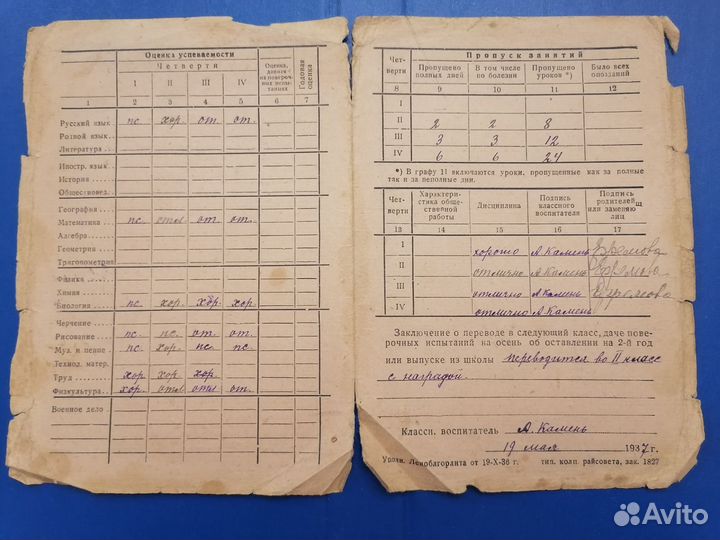 Оценка успеваемости
Четверти
Оценка, данная на поверочных испытаниях
Годовая оценка
I II III IV
1 2 3 4 5 6 7
Русский язык пс. хор. от. от.
Родной язык
Литература
Иностр. язык
История
Обществовед.
География
Математика пс. отл от. от.
Алгебра
Геометрия
Тригонометрия
Физика
Химия
Биология пс. хор. хор. хор.
Черчение
Рисование пс. пс. от. от.
Муз. и пение пс. хор пс. пс.
Технол. матер.
Труд хор. хор. хор.
Физкультура хор. отл отл от.
Военное дело
Четверти
Пропуск занятий
Пропущено полных дней
В том числе по болезни
Пропущено уроков *)
Было всех опозданий
8 9 10 11 12
I
II 2 2 8
III 3 3 12
IV 6 6 24
*) В графу 11 включаются уроки, пропущенные как за полные
так и за неполные дни.
Четверти
Характеристика общественной работы
Дисциплина
Подпись классного воспитателя
Подпись родителей или заменяющ лиц
13 14 15 16 17
I хорошо А Камень Ефремова
II отлично А Камень Ефремова
III отлично А Камень Ефремова
IV отлично А Камень
Заключение о переводе в следующий класс, даче пове-
рочных испытаний на осень об оставлении на 2-й год
или выпуске из школы переводится во II класс
с наградой.
Классн. воспитатель А. Камень
19 мая 1937 г.
Упохи. Леноблгорлита от 19-X-36 г. тип. колп. райсовета, зак. 1827
Avito